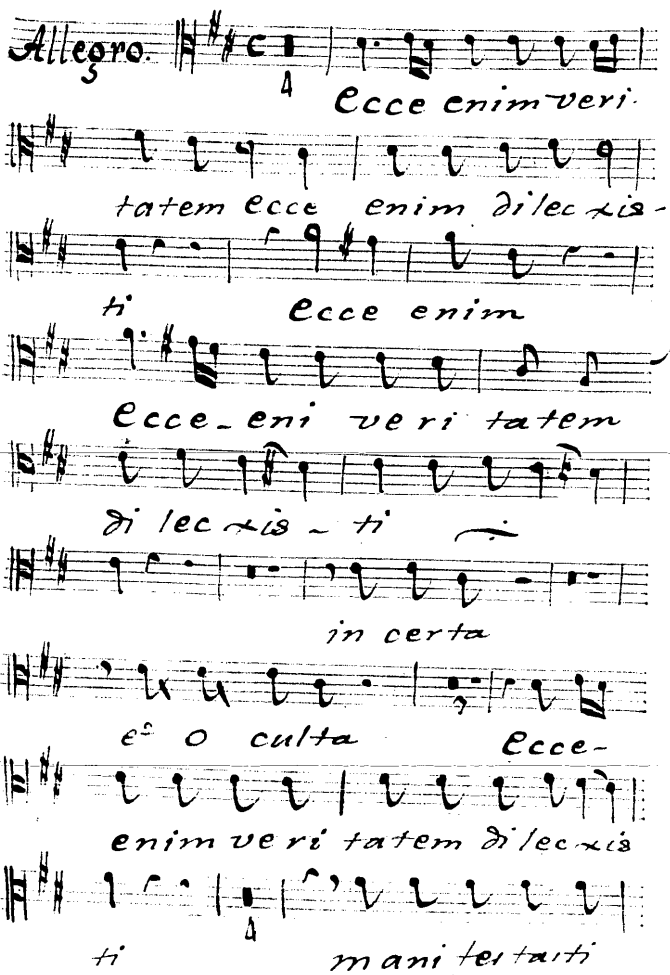 Allegro.
4
ecce enim veri.
tatem ecce enim dilec xis-
ti ecce enim
ecce- eni veri tatem
di lec xis - ti
in certa
et o culta ecce-
enim veri tatem dilec xis
4
ti mani testasti